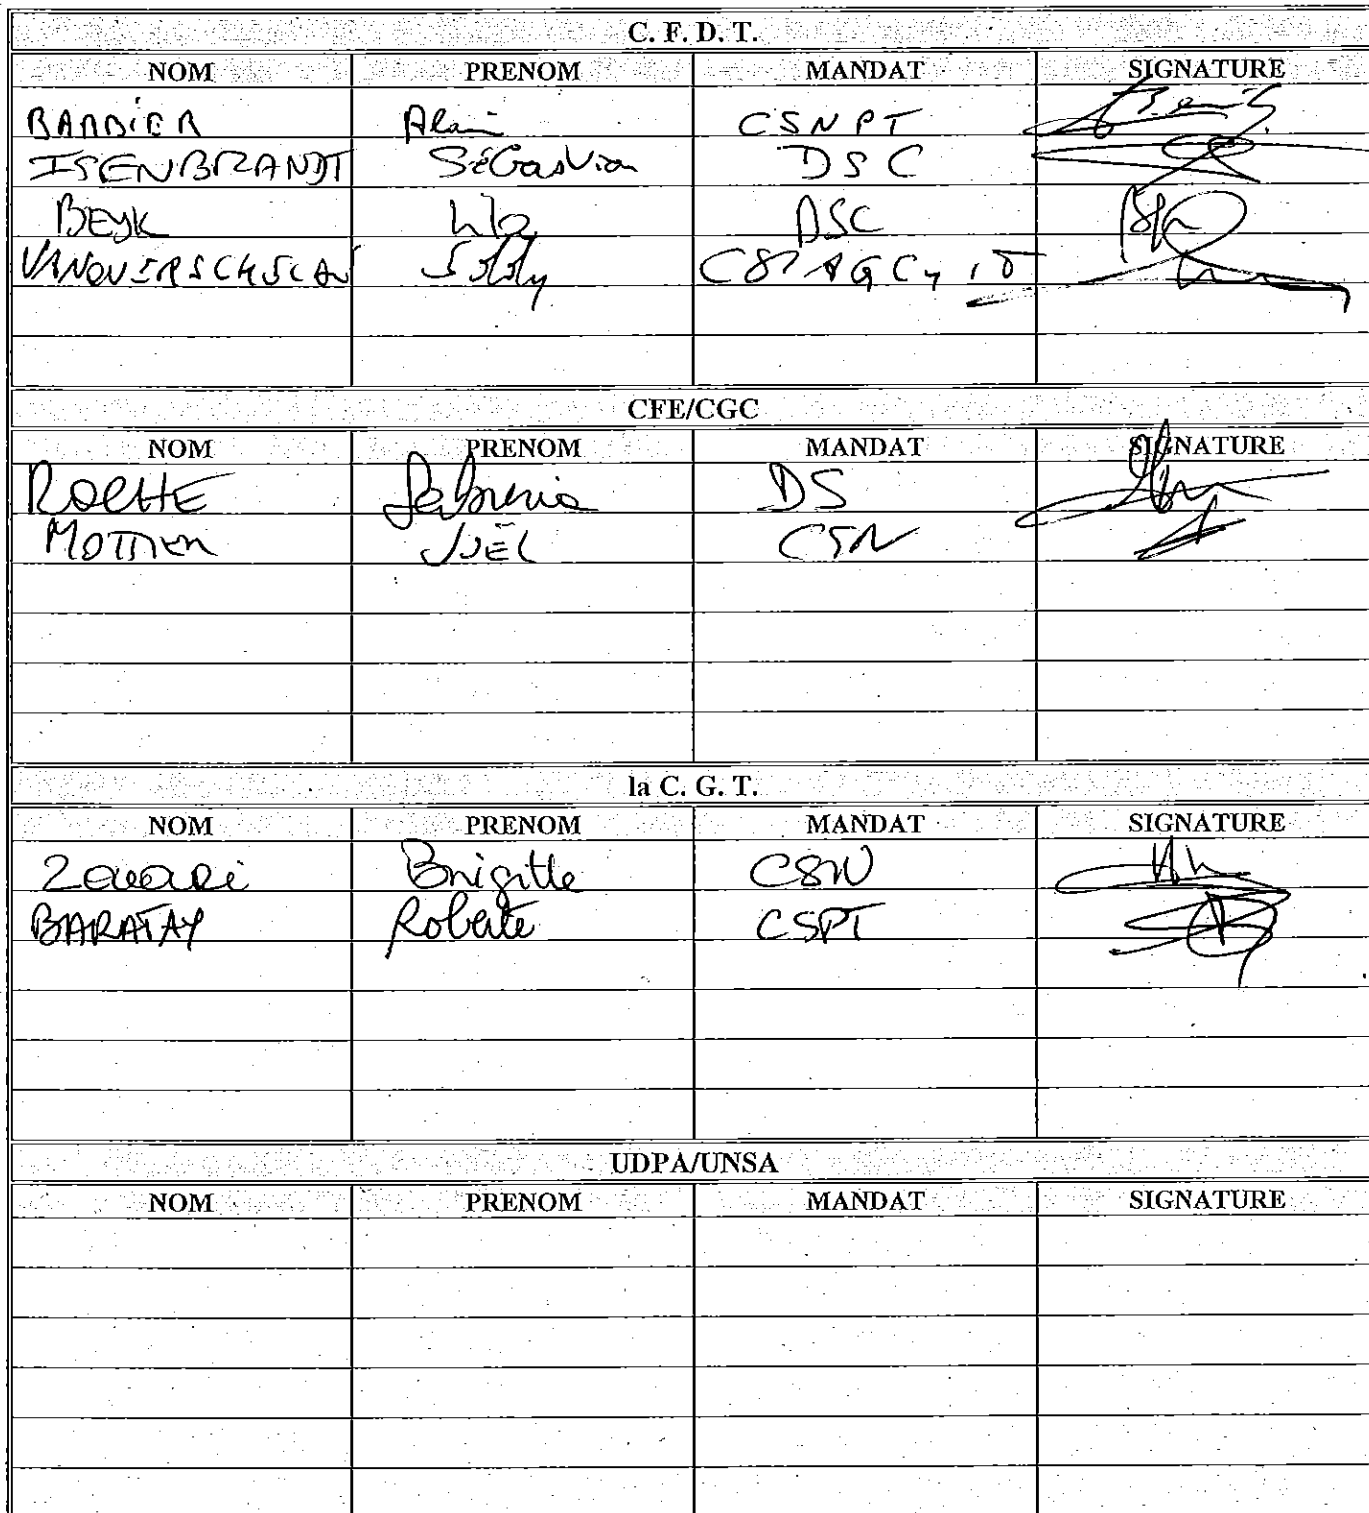 C. F. D. T.
NOM PRENOM MANDAT SIGNATURE
BARBIER Alain CSNPT
ISENBRANDT Sébastien DSC
BEYK DSC

CFE/CGC
NOM PRENOM MANDAT SIGNATURE
ROCHE DS
JOËL CSN
la C. G. T.
NOM PRENOM MANDAT SIGNATURE
Brigitte CSN
BARATAY Roberte CSPT
UDPA/UNSA
NOM PRENOM MANDAT SIGNATURE